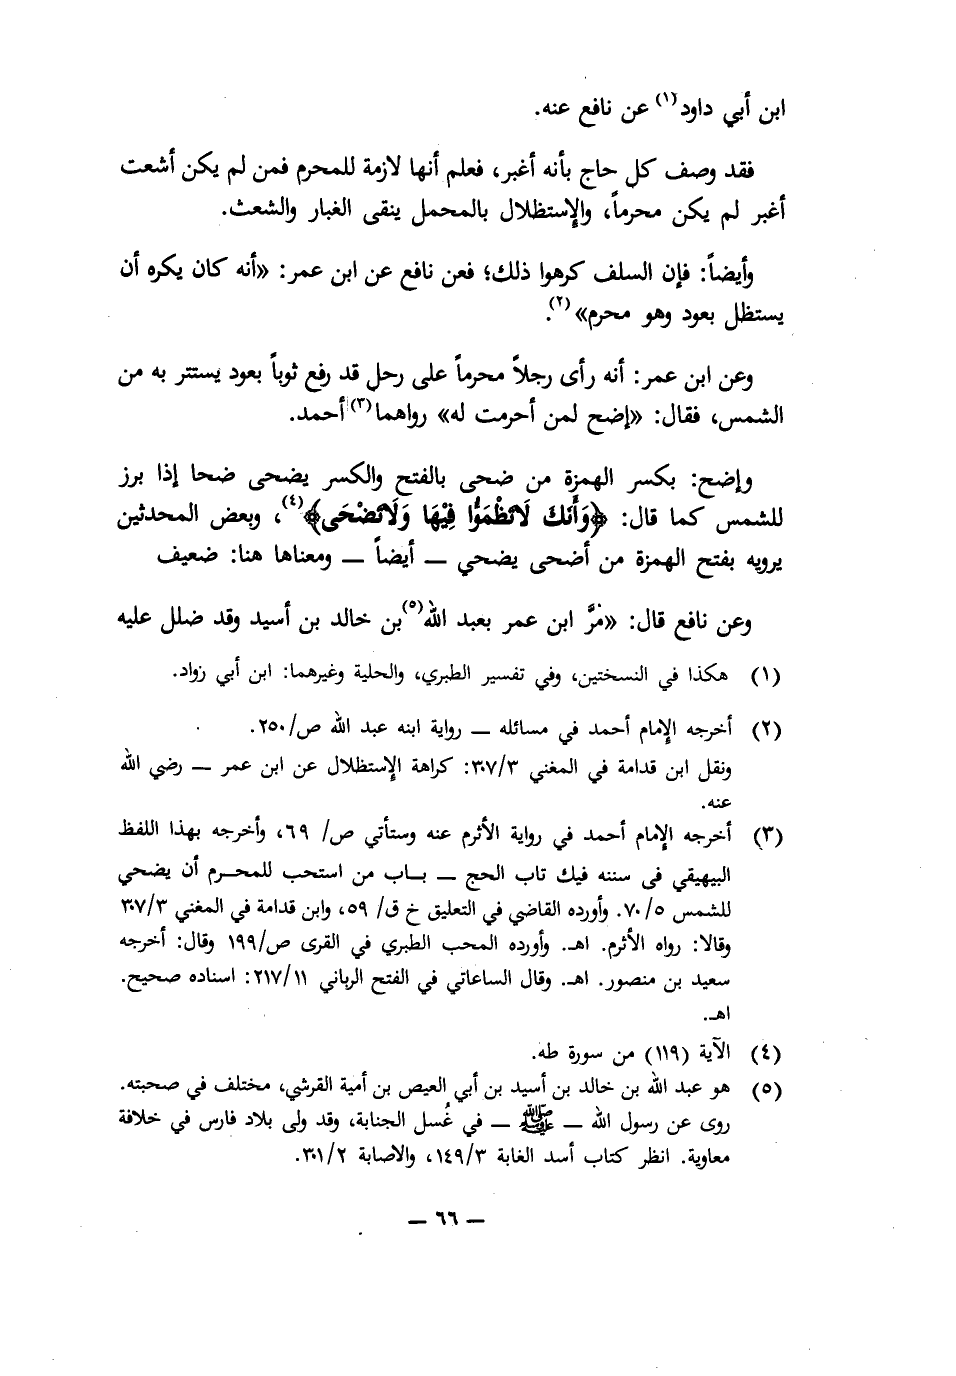 ابن أبي داود(١) عن نافع عنه.
فقد وصف كل حاج بأنه أغبر، فعلم أنها لازمة للمحرم فمن لم يكن أشعت
أغبر لم يكن محرماً، والإستظلال بالمحمل ينقى الغبار والشعث.
وأيضاً: فإن السلف كرهوا ذلك؛ فعن نافع عن ابن عمر: «أنه كان يكره أن
يستظل بعود وهو محرم»(٢).
وعن ابن عمر: أنه رأى رجلاً محرماً على رحل قد رفع ثوباً بعود يستتر به من
الشمس، فقال: «إضح لمن أحرمت له» رواهما(٣) أحمد.
وإضح: بكسر الهمزة من ضحى بالفتح والكسر يضحى ضحا إذا برز
للشمس كما قال: ﴿وَأَنَّكَ لَا تَظْمَؤُا فِيهَا وَلَا تَضْحَى﴾(٤)، وبعض المحدثين
يرويه بفتح الهمزة من أضحى يضحي — أيضاً — ومعناها هنا: ضعيف
وعن نافع قال: «مرَّ ابن عمر بعبد الله(٥) بن خالد بن أسيد وقد ضلل عليه
(١) هكذا في النسختين، وفي تفسير الطبري، والحلية وغيرهما: ابن أبي زواد.
(٢) أخرجه الإمام أحمد في مسائله — رواية ابنه عبد الله ص/٢٥٠.
ونقل ابن قدامة في المغني ٣٠٧/٣: كراهة الإستظلال عن ابن عمر — رضي الله
عنه.
(٣) أخرجه الإمام أحمد في رواية الأثرم عنه وستأتي ص/ ٦٩، وأخرجه بهذا اللفظ
البيهيقي فى سننه فيك تاب الحج — بـاب من استحب للمحرم أن يضحي
للشمس ٧٠/٥. وأورده القاضي في التعليق خ ق/ ٥٩، وابن قدامة في المغني ٣٠٧/٣
وقالا: رواه الأثرم. اهـ. وأورده المحب الطبري في القرى ص/١٩٩ وقال: أخرجه
سعيد بن منصور. اهـ. وقال الساعاتي في الفتح الرباني ٢١٧/١١: اسناده صحيح.
اهـ.
(٤) الآية (١١٩) من سورة طه.
(٥) هو عبد الله بن خالد بن أسيد بن أبي العيص بن أمية القرشي، مختلف في صحبته.
روى عن رسول الله — ﷺ — في غُسل الجنابة، وقد ولى بلاد فارس في خلافة
معاوية. انظر كتاب أسد الغابة ١٤٩/٣، والاصابة ٣٠١/٢.
— ٦٦ —